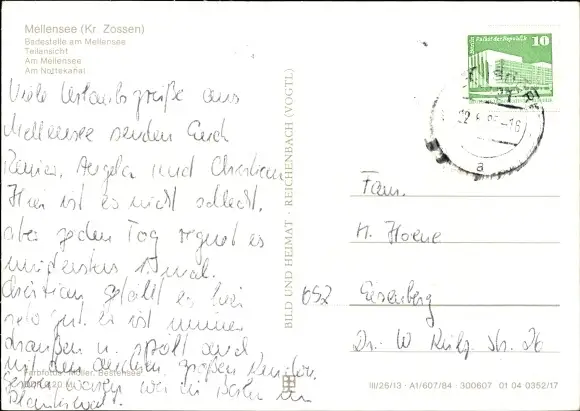 Mellensee (Kr. Zossen)
Badestelle am Mellensee
Teilansicht
Am Mellensee
Am Nottekanal
Viele Urlaubsgrüße aus
Mellensee senden Euch
Angela und Christian
Hier ist es nicht schlecht,
aber jeden Tag regnet es
mindestens 1 mal.
Christian gefällt es hier
sehr gut. er ist immer
draußen u. spielt auch
mit den anderen großen Kindern.
Gestern waren wir in Berlin im
BILD UND HEIMAT · REICHENBACH (VOGTL)
Berlin Palast der Republik 10
DDR
a
Fam.
H. Horne
652 Eisenberg
Dr. W Külz Str. 26
III/26/13 · A1/607/84 · 300607 01 04 0352/17